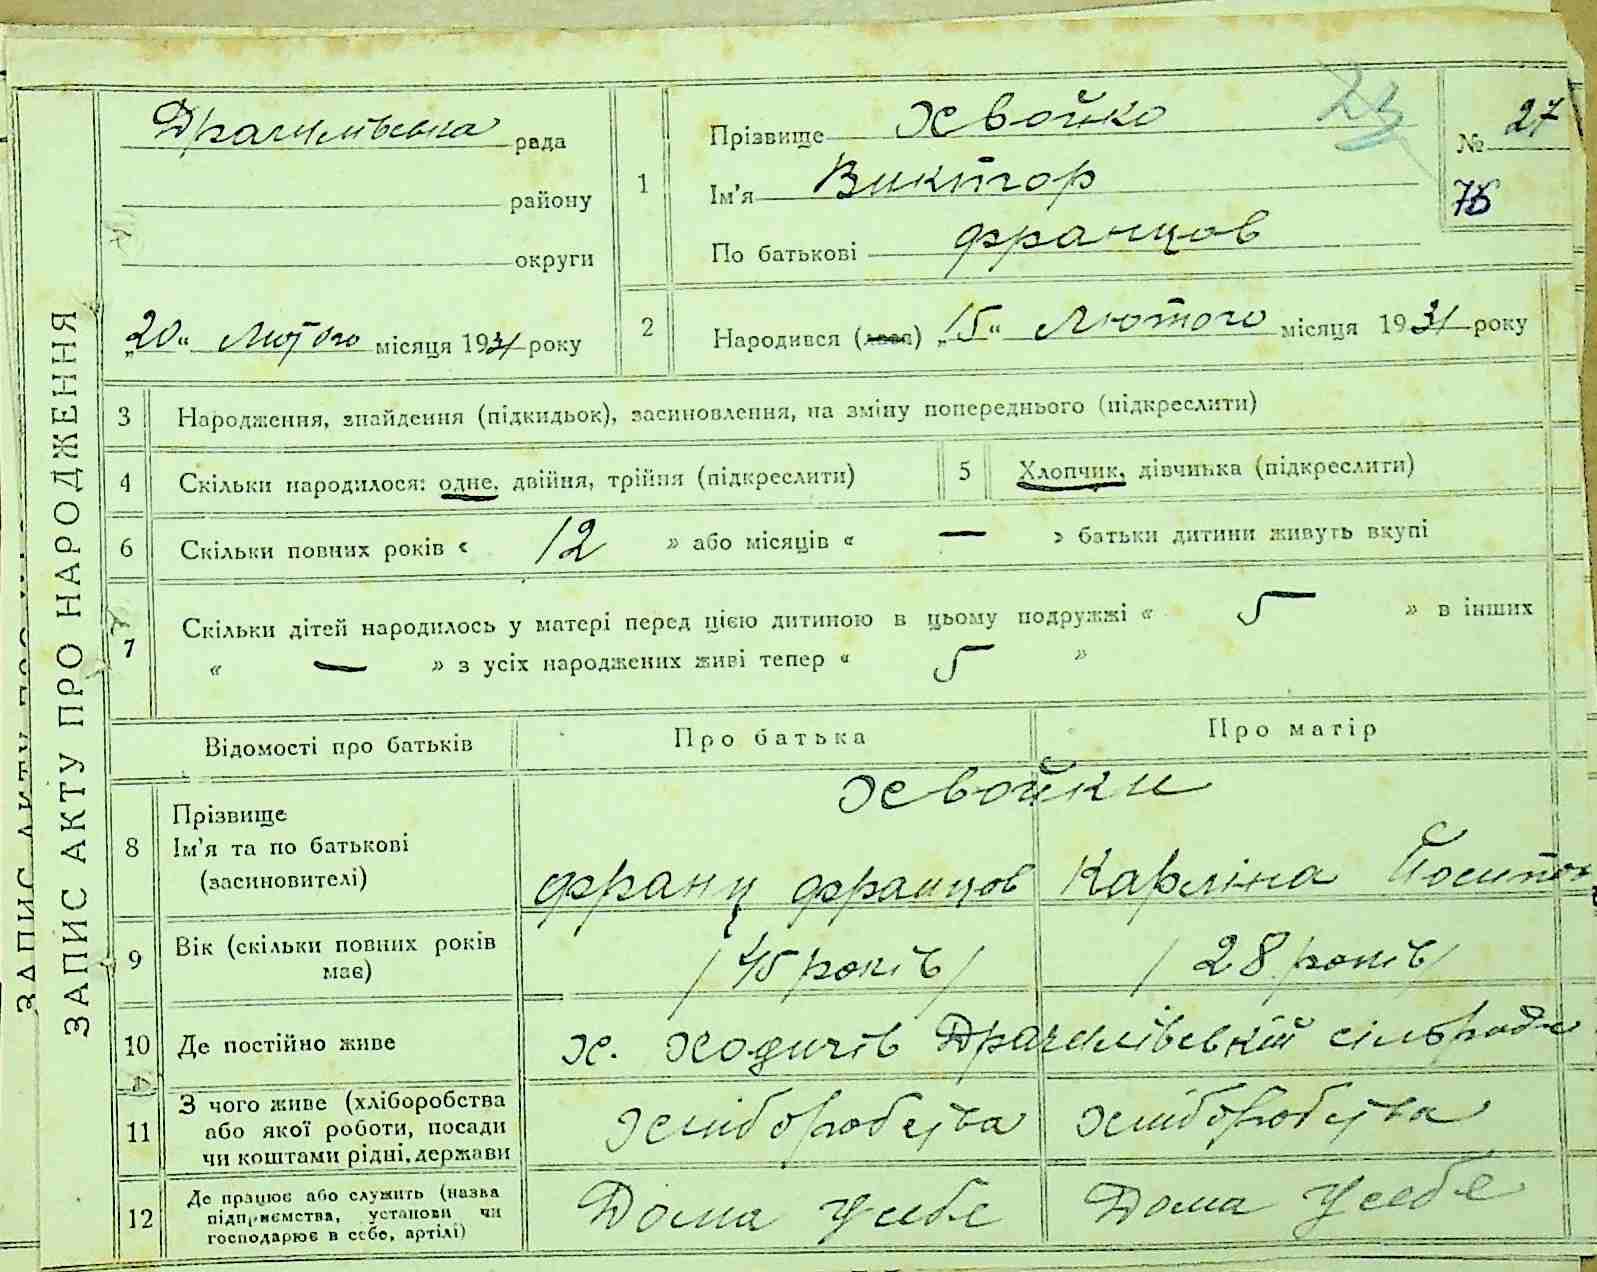 ЗАПИС АКТУ ПРО НАРОДЖЕННЯ
Драчилівська рада
району
округи
„20“ Лютого місяця 1931 року
1
Прізвище Хвойко
Ім'я Виктор
По батькові Францов
23
№ 27
76
2
Народився (лася) „15“ Лютого місяця 1931 року
3 Народження, знайдення (підкидьок), засиновлення, на зміну попереднього (підкреслити)
4 Скільки народилося: одне, двійня, трійня (підкреслити)
5 Хлопчик, дівчинка (підкреслити)
6 Скільки повних років « 12 » або місяців « — » батьки дитини живуть вкупі
7 Скільки дітей народилось у матері перед цією дитиною в цьому подружжі « 5 » в інших
« — » з усіх народжених живі тепер « 5 »
Відомості про батьків Про батька Про матір
Хвойки
8 Прізвище
Ім'я та по батькові
(засиновителі)
Франц Францов Карліна
9 Вік (скільки повних років
має)
/45 років/ /28 років/
10 Де постійно живе х. Ходичів Драчилівській сільраде
11 З чого живе (хліборобства
або якої роботи, посади
чи коштами рідні, держави
Хліборобства Хліборобства
12 Де працює або служить (назва
підприємства, установи чи
господарює в себе, артілі)
Дома у себе Дома у себе